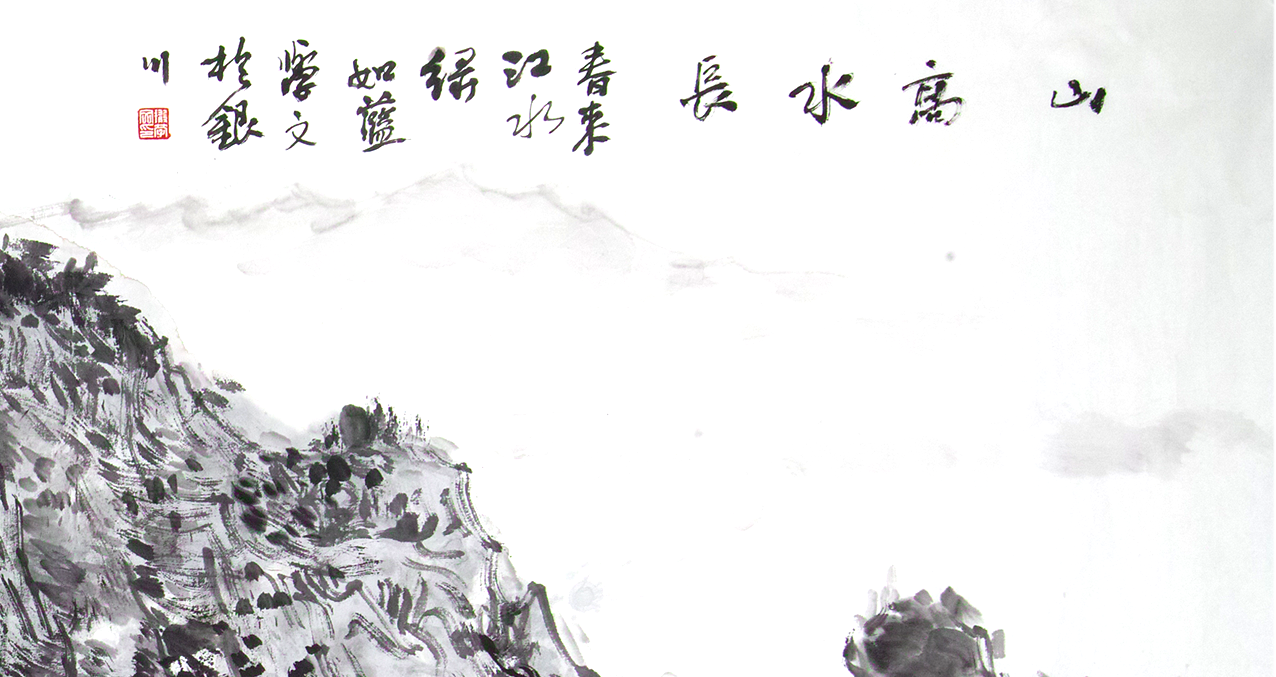 山高水長
春來
江水
绿
如蓝
學文
於銀
川